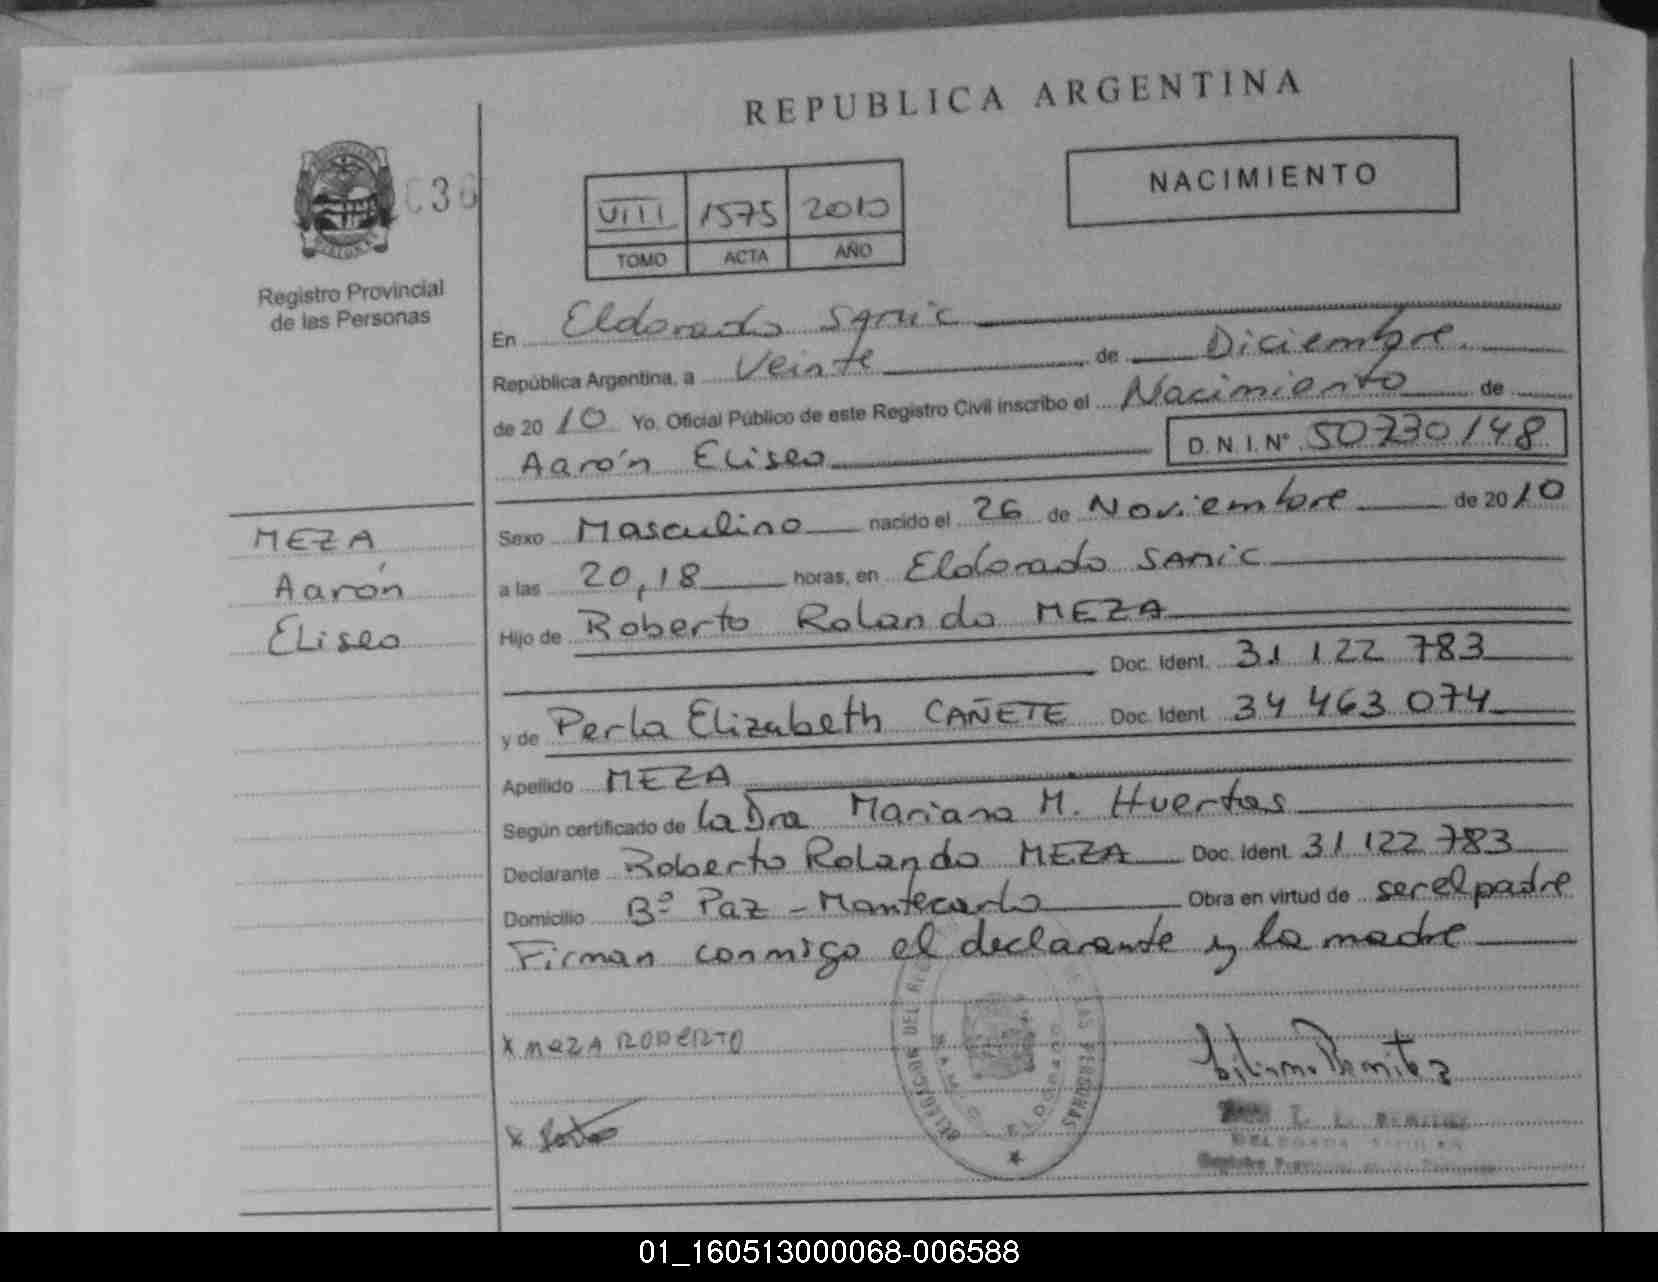 REPUBLICA ARGENTINA
NACIMIENTO
C36
VIII 1575 2010
TOMO ACTA AÑO
Registro Provincial
de las Personas
En Eldorado Samic
República Argentina, a Veinte de Diciembre
de 2010 Yo, Oficial Público de este Registro Civil inscribo el Nacimiento de
Aarón Eliseo D.N.I.N° 50730148
MEZA
Aarón
Eliseo
Sexo Masculino nacido el 26 de Noviembre de 2010
a las 20,18 horas, en Eldorado SAMIC
Hijo de Roberto Rolando MEZA
Doc. Ident. 31 122 783
y de Perla Elizabeth CAÑETE Doc. Ident. 34 463 074
Apellido MEZA
Según certificado de la Dra Mariana M. Huertas
Declarante Roberto Rolando MEZA Doc. Ident. 31 122 783
Domicilio B° Paz - Montecarlo Obra en virtud de ser el padre
Firman conmigo el declarante y la madre
x MEZA ROBERTO
01_160513000068-006588